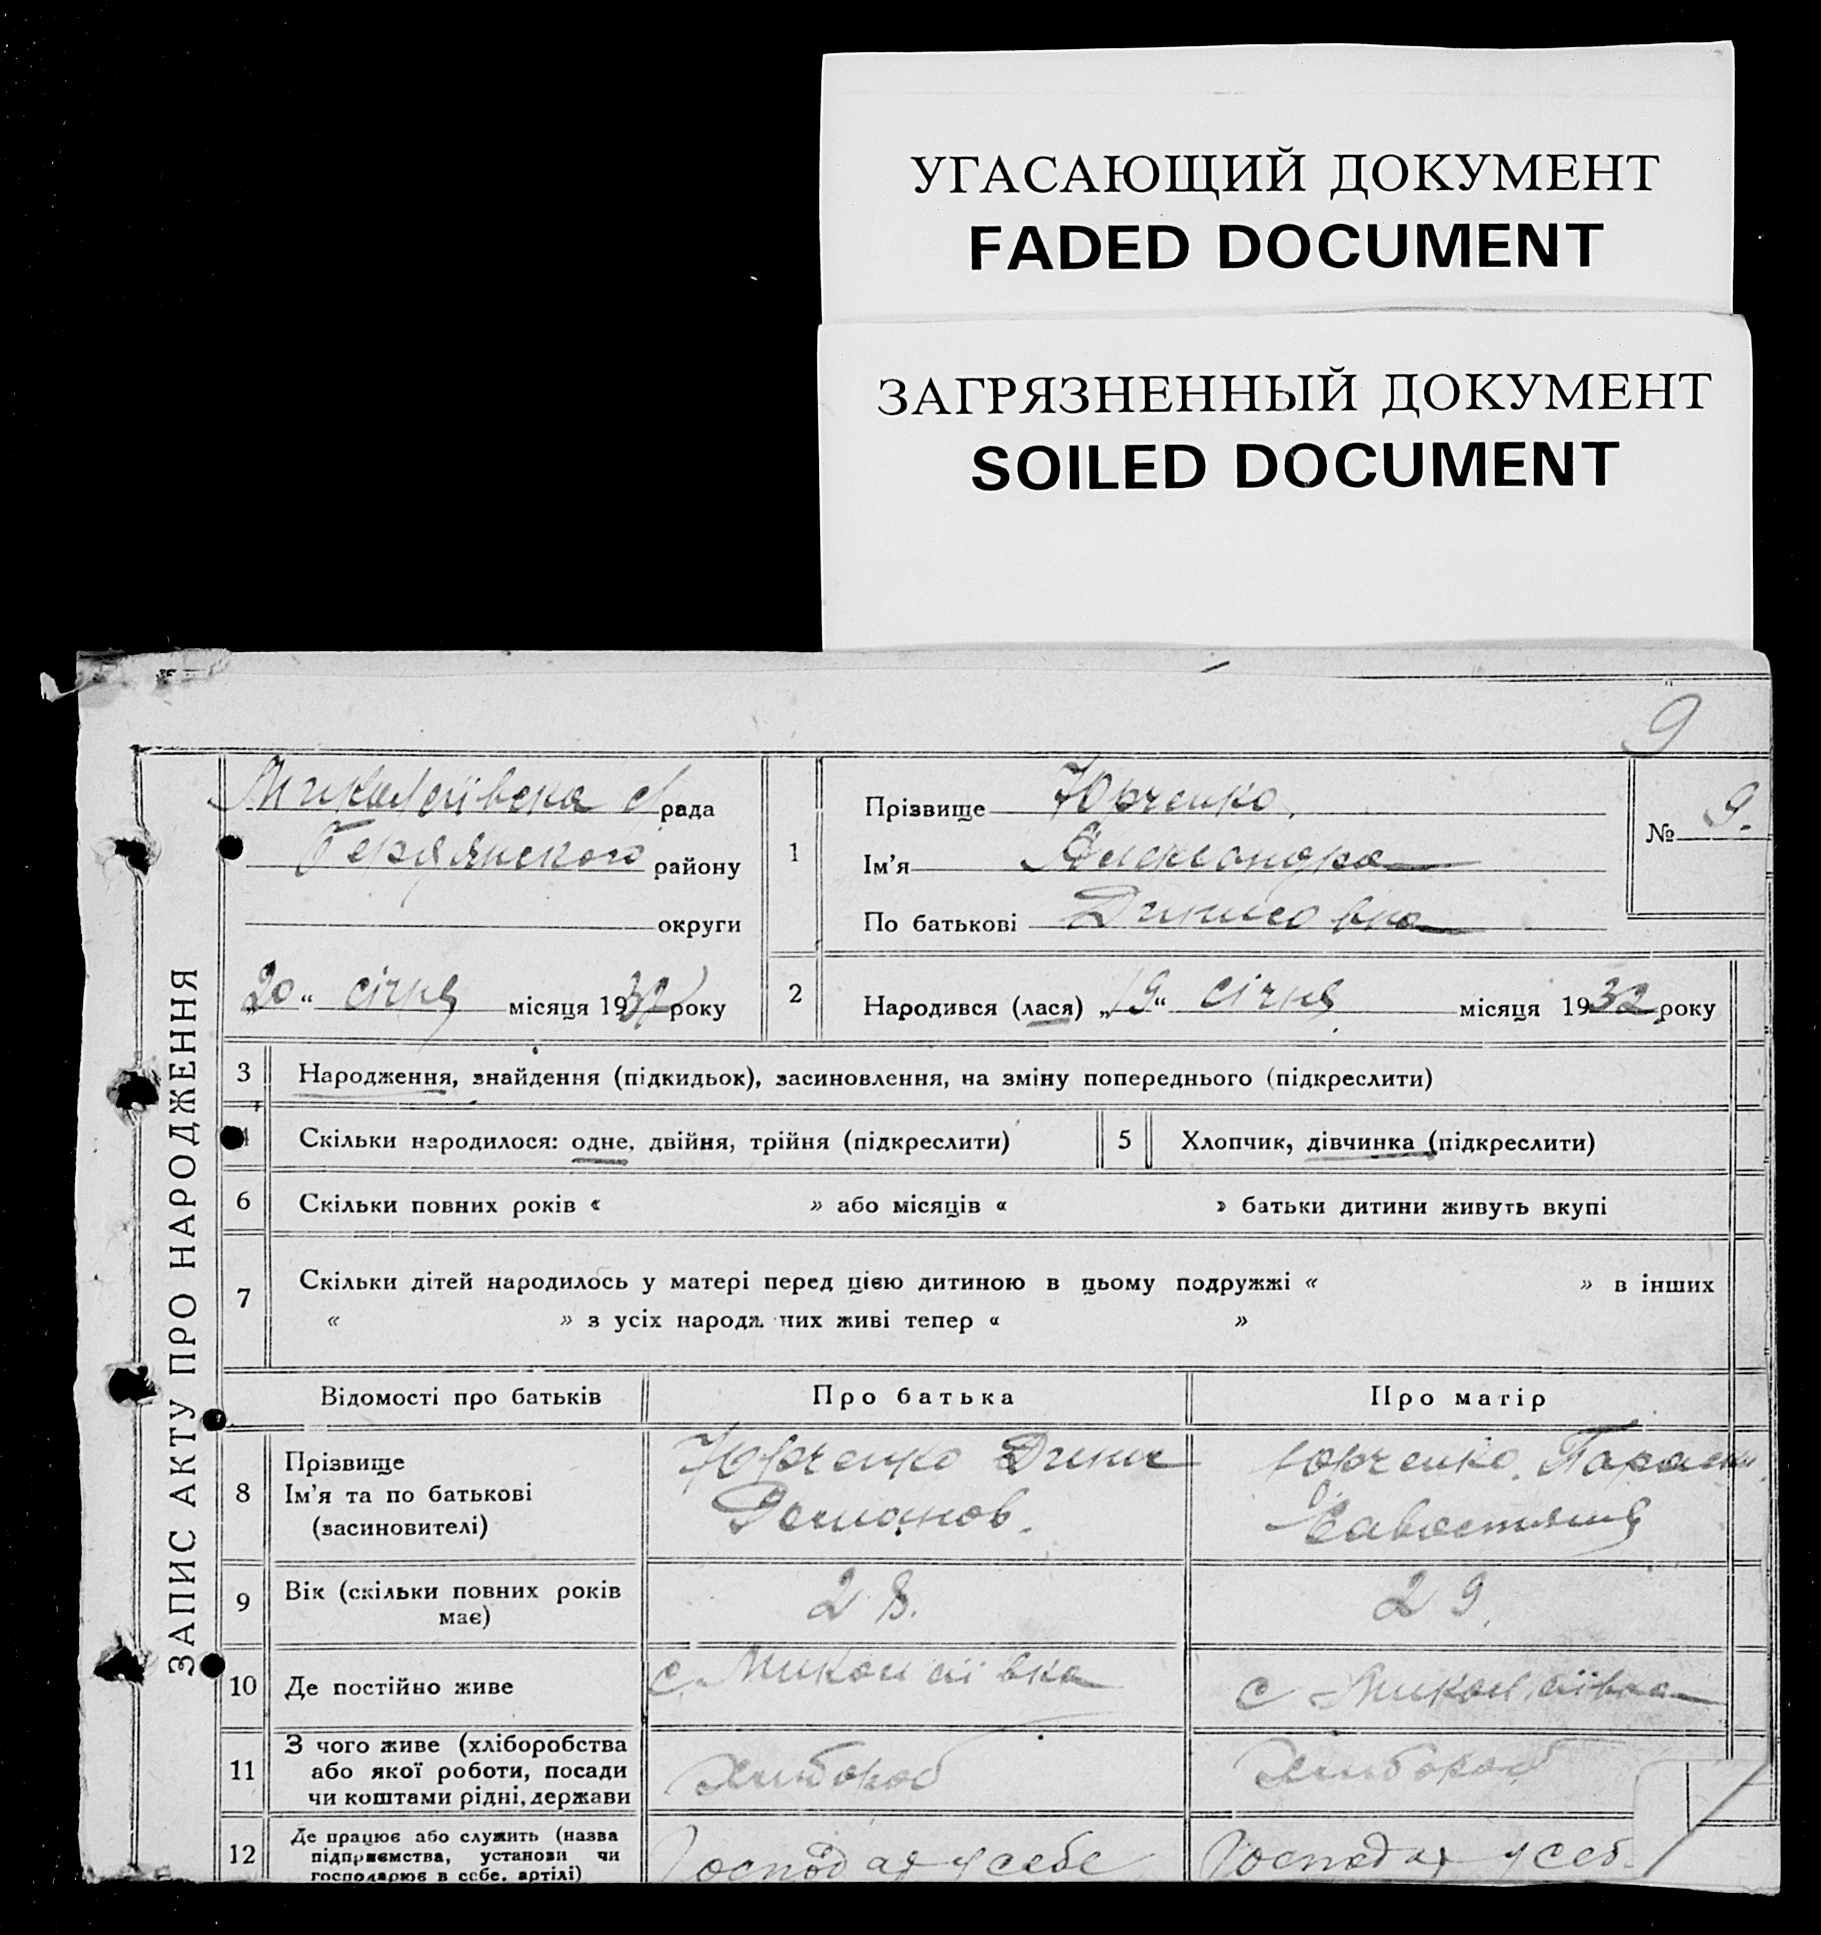 УГАСАЮЩИЙ ДОКУМЕНТ
FADED DOCUMENT
ЗАГРЯЗНЕННЫЙ ДОКУМЕНТ
SOILED DOCUMENT
9
ЗАПИС АКТУ ПРО НАРОДЖЕННЯ
Миколаївська с/рада
Бердянского району
округи
„20“ січня місяця 1932 року
1
Прізвище Юрченко
Ім'я Александра
По батькові
№ 9.
2
Народився (лася) „19“ січня місяця 1932 року
3 Народження, знайдення (підкидьок), засиновлення, на зміну попереднього (підкреслити)
4 Скільки народилося: одне, двійня, трійня (підкреслити)
5 Хлопчик, дівчинка (підкреслити)
6 Скільки повних років « » або місяців « » батьки дитини живуть вкупі
7 Скільки дітей народилось у матері перед цією дитиною в цьому подружжі « » в інших
« » з усіх народж них живі тепер « »
Відомості про батьків Про батька Про матір
8 Прізвище
Ім'я та по батькові
(засиновителі)
Юрченко
Юрченко
9 Вік (скільки повних років
має)
28.
29.
10 Де постійно живе
с. Миколаївка
с Миколаївка
11 З чого живе (хліборобства
або якої роботи, посади
чи коштами рідні, держави
хлібороб
хлібороб
12 Де працює або служить (назва
підприємства, установи чи
господарює в себе, артілі)
Господар у себе
Господар у себ